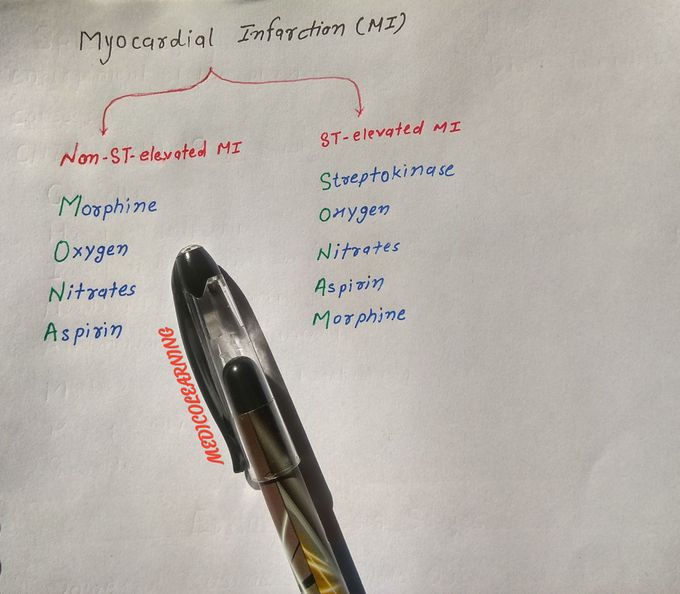 Myocardial Infarction (MI)
Non-ST-elevated MI
Morphine
Oxygen
Nitrates
Aspirin
ST-elevated MI
Streptokinase
Oxygen
Nitrates
Aspirin
Morphine
MEDICOLEARNING